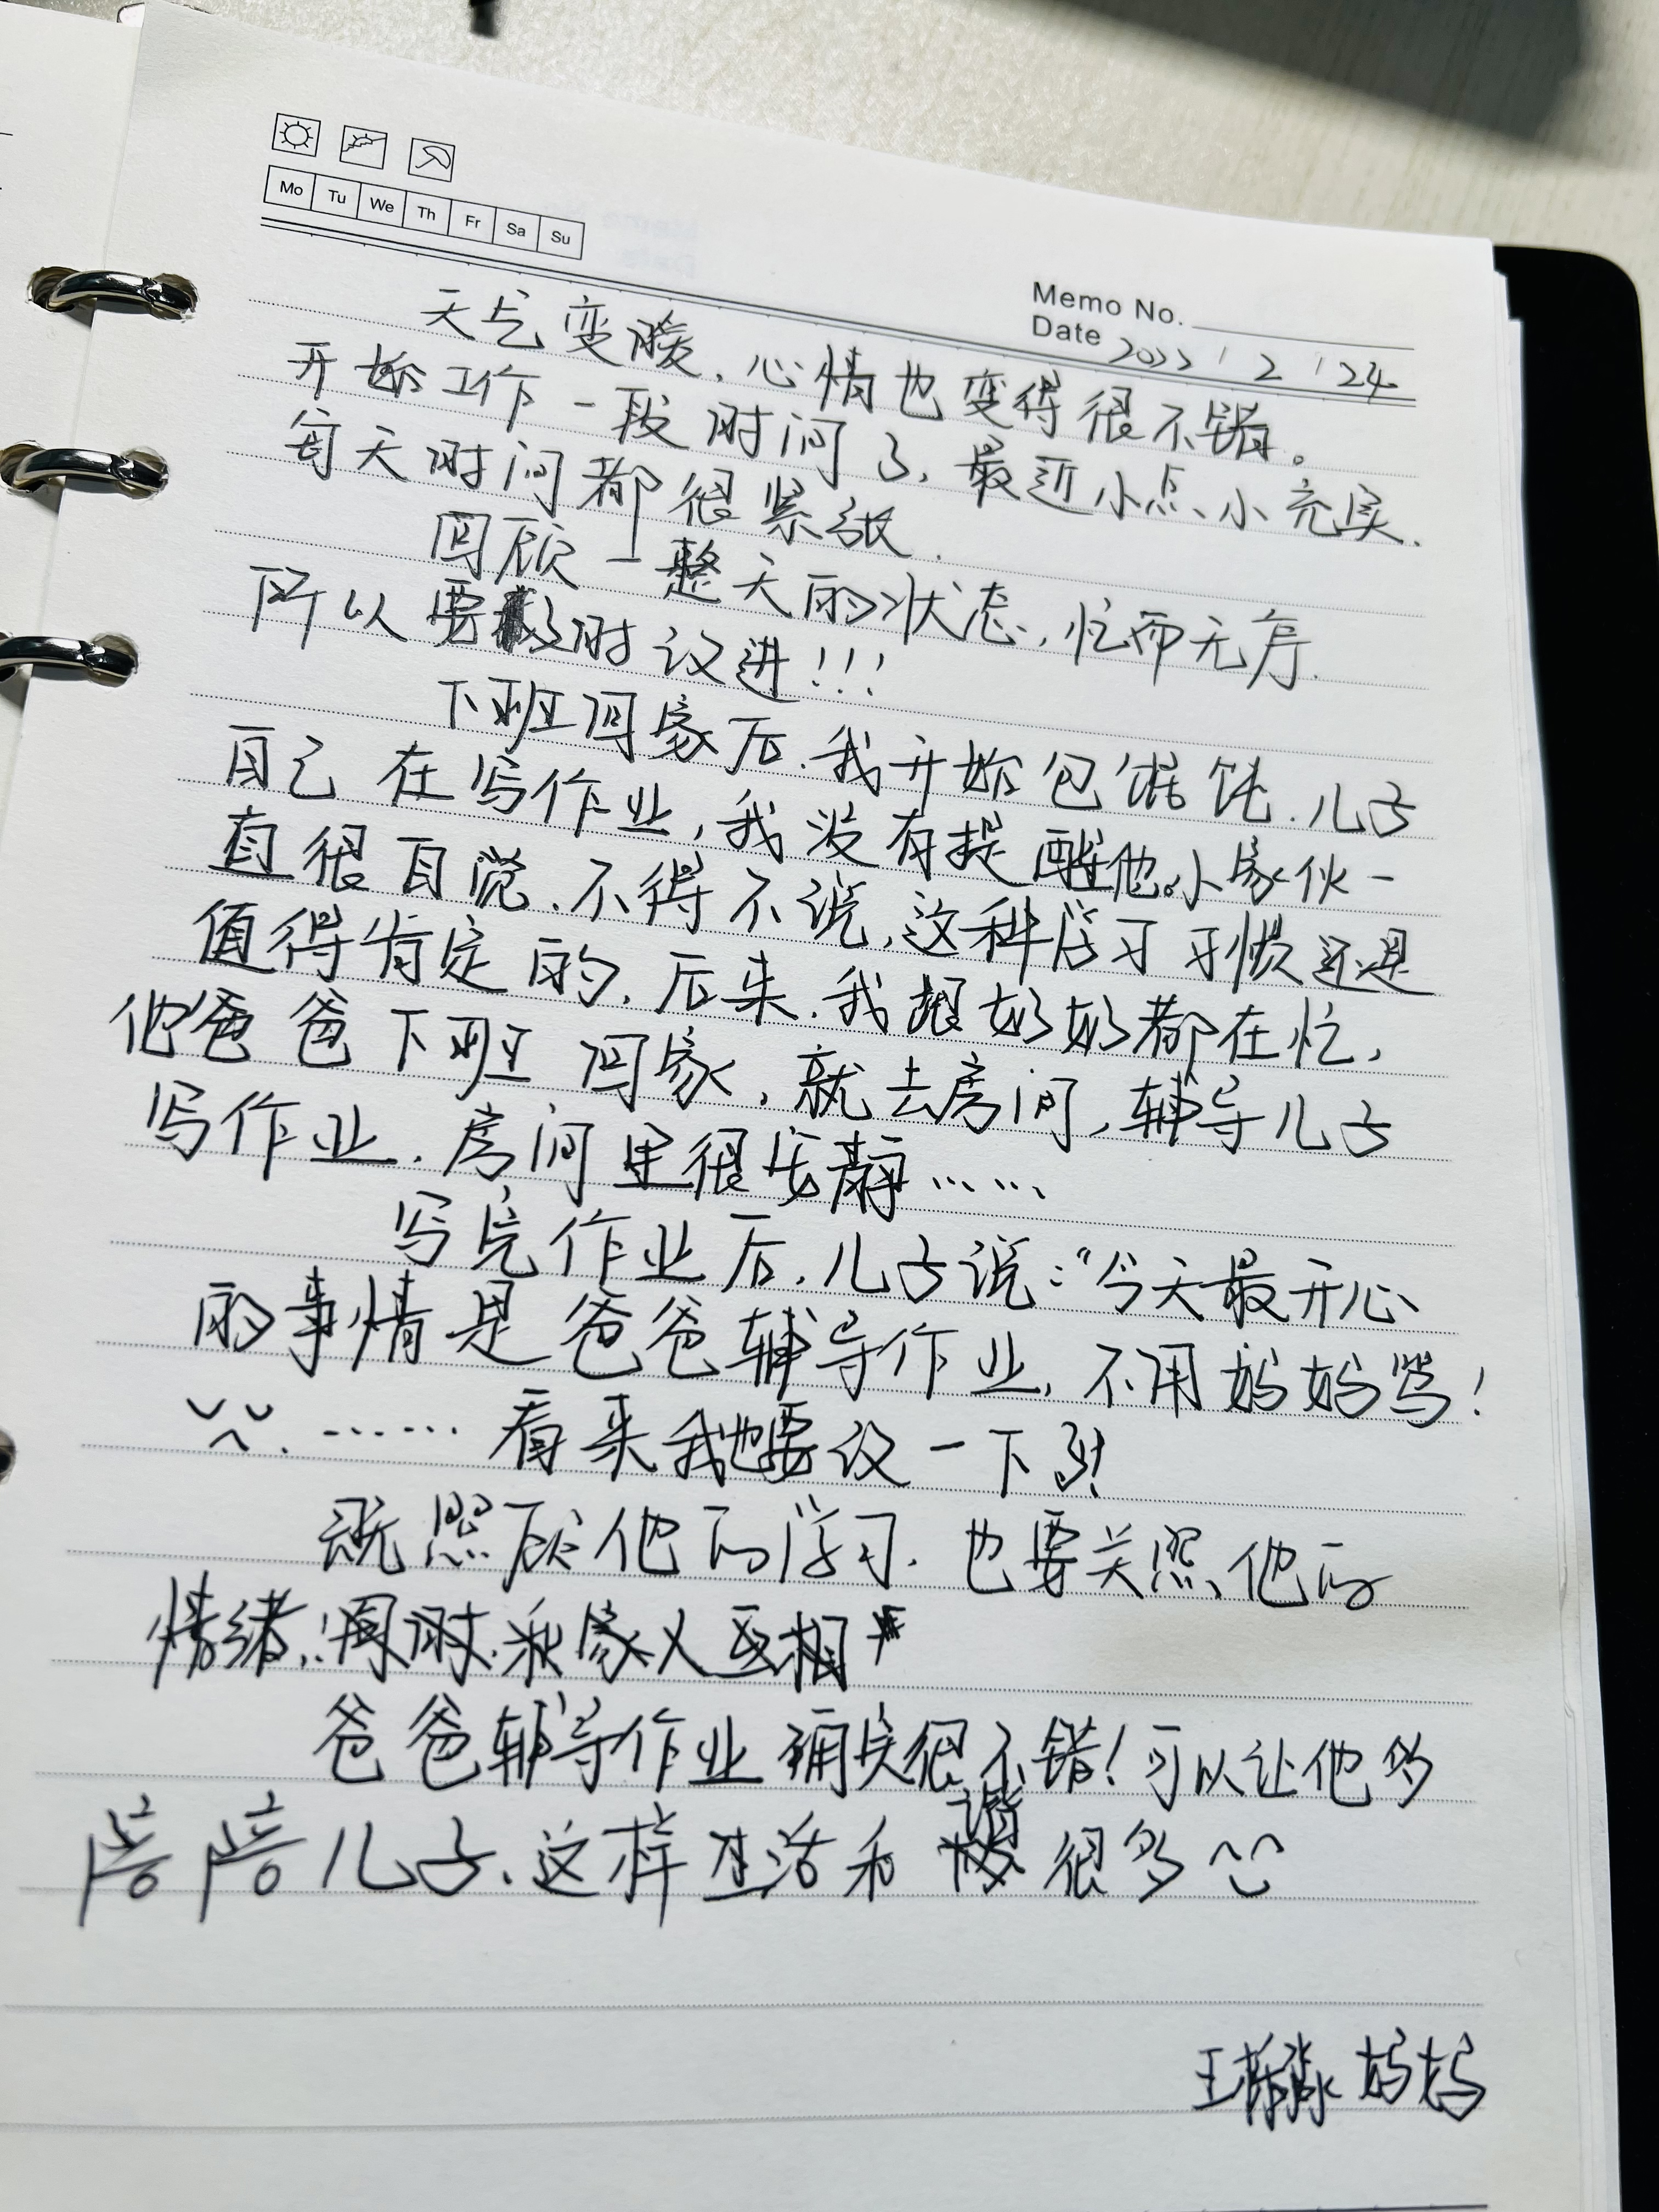 Mo Tu We Th Fr Sa Su
Memo No.
Date 2022 / 2 / 24
天气变暖，心情也变得很不错。
开始工作一段时间了，最近小点、小充实，
每天时间都很紧张．
回顾一整天的状态，忙而无序．
所以要及时改进！！！
下班回家后．我开始包馄饨．儿子
自己在写作业，我没有提醒他。小家伙一
直很自觉．不得不说，这种学习习惯还是
值得肯定的．后来．我跟奶奶都在忙，
他爸爸下班回家，就去房间，辅导儿子
写作业．房间里很安静……
写完作业后．儿子说：“今天最开心
的事情是爸爸辅导作业，不用妈妈骂！
……看来我也要改一下了！
既照顾他的学习．也要关照他的
情绪，同时．和家人互相
爸爸辅导作业确实很不错！可以让他多
陪陪儿子、这样生活和谐很多
王 妈妈